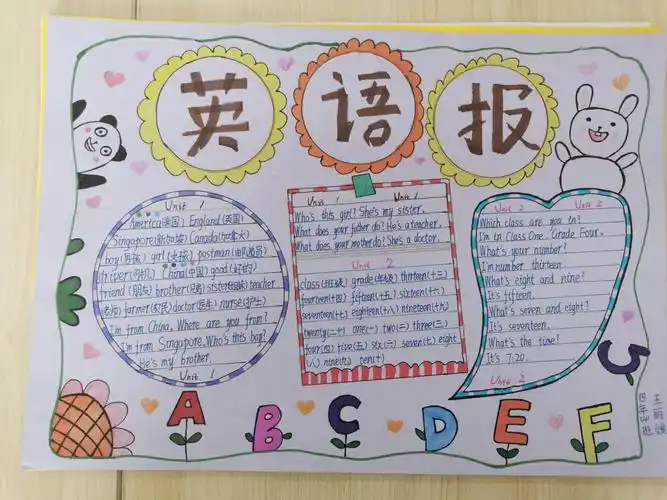 英语报
Unit 1
America(美国) England(英国)
Singapore(新加坡) Canada(加拿大)
boy(男孩) girl(女孩) postman(邮递员)
driver(司机) China(中国) good(好的)
friend(朋友) brother(兄弟) sister(姐妹) teacher
(老师) farmer(农民) doctor(医生) nurse(护士)
I'm from China. Where are you from?
I'm from Singapore. Who's this boy?
He's my brother.
Unit 1
Unit 1 Unit 1
Who's this girl? She's my sister.
What does your father do? He's a teacher.
What does your mother do? She's a doctor.
Unit 2
class(班级) grade(年级) thirteen(十三)
fourteen(十四) fifteen(十五) sixteen(十六)
seventeen(十七) eighteen(十八) nineteen(十九)
twenty(二十) one(一) two(二) three(三)
four(四) five(五) six(六) seven(七) eight
(八) nine(九) ten(十)
Unit 2 Unit 2
Which class are you in?
I'm in Class One, Grade Four.
What's your number?
I'm number thirteen.
What's eight and nine?
It's fifteen.
What's seven and eight?
It's seventeen.
What's the time?
It's 7:20.
Unit 2
A B C D E F
四年三班